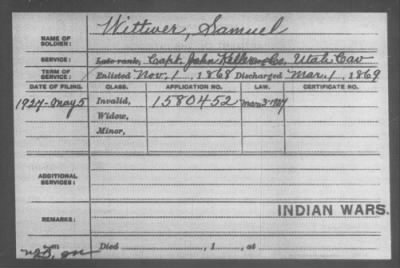 Wittwer, Samuel
NAME OF SOLDIER:
SERVICE: Late rank, Capt. John Co. Utah Cav
TERM OF SERVICE: Enlisted Nov. 1, 1868 Discharged Mar. 1, 1869
DATE OF FILING. CLASS. APPLICATION NO. LAW. CERTIFICATE NO.
1927-May 5 Invalid, 1580452 Mar 3 1927
Widow,
Minor,
ADDITIONAL SERVICES:
INDIAN WARS.
REMARKS:
Died , 1 , at